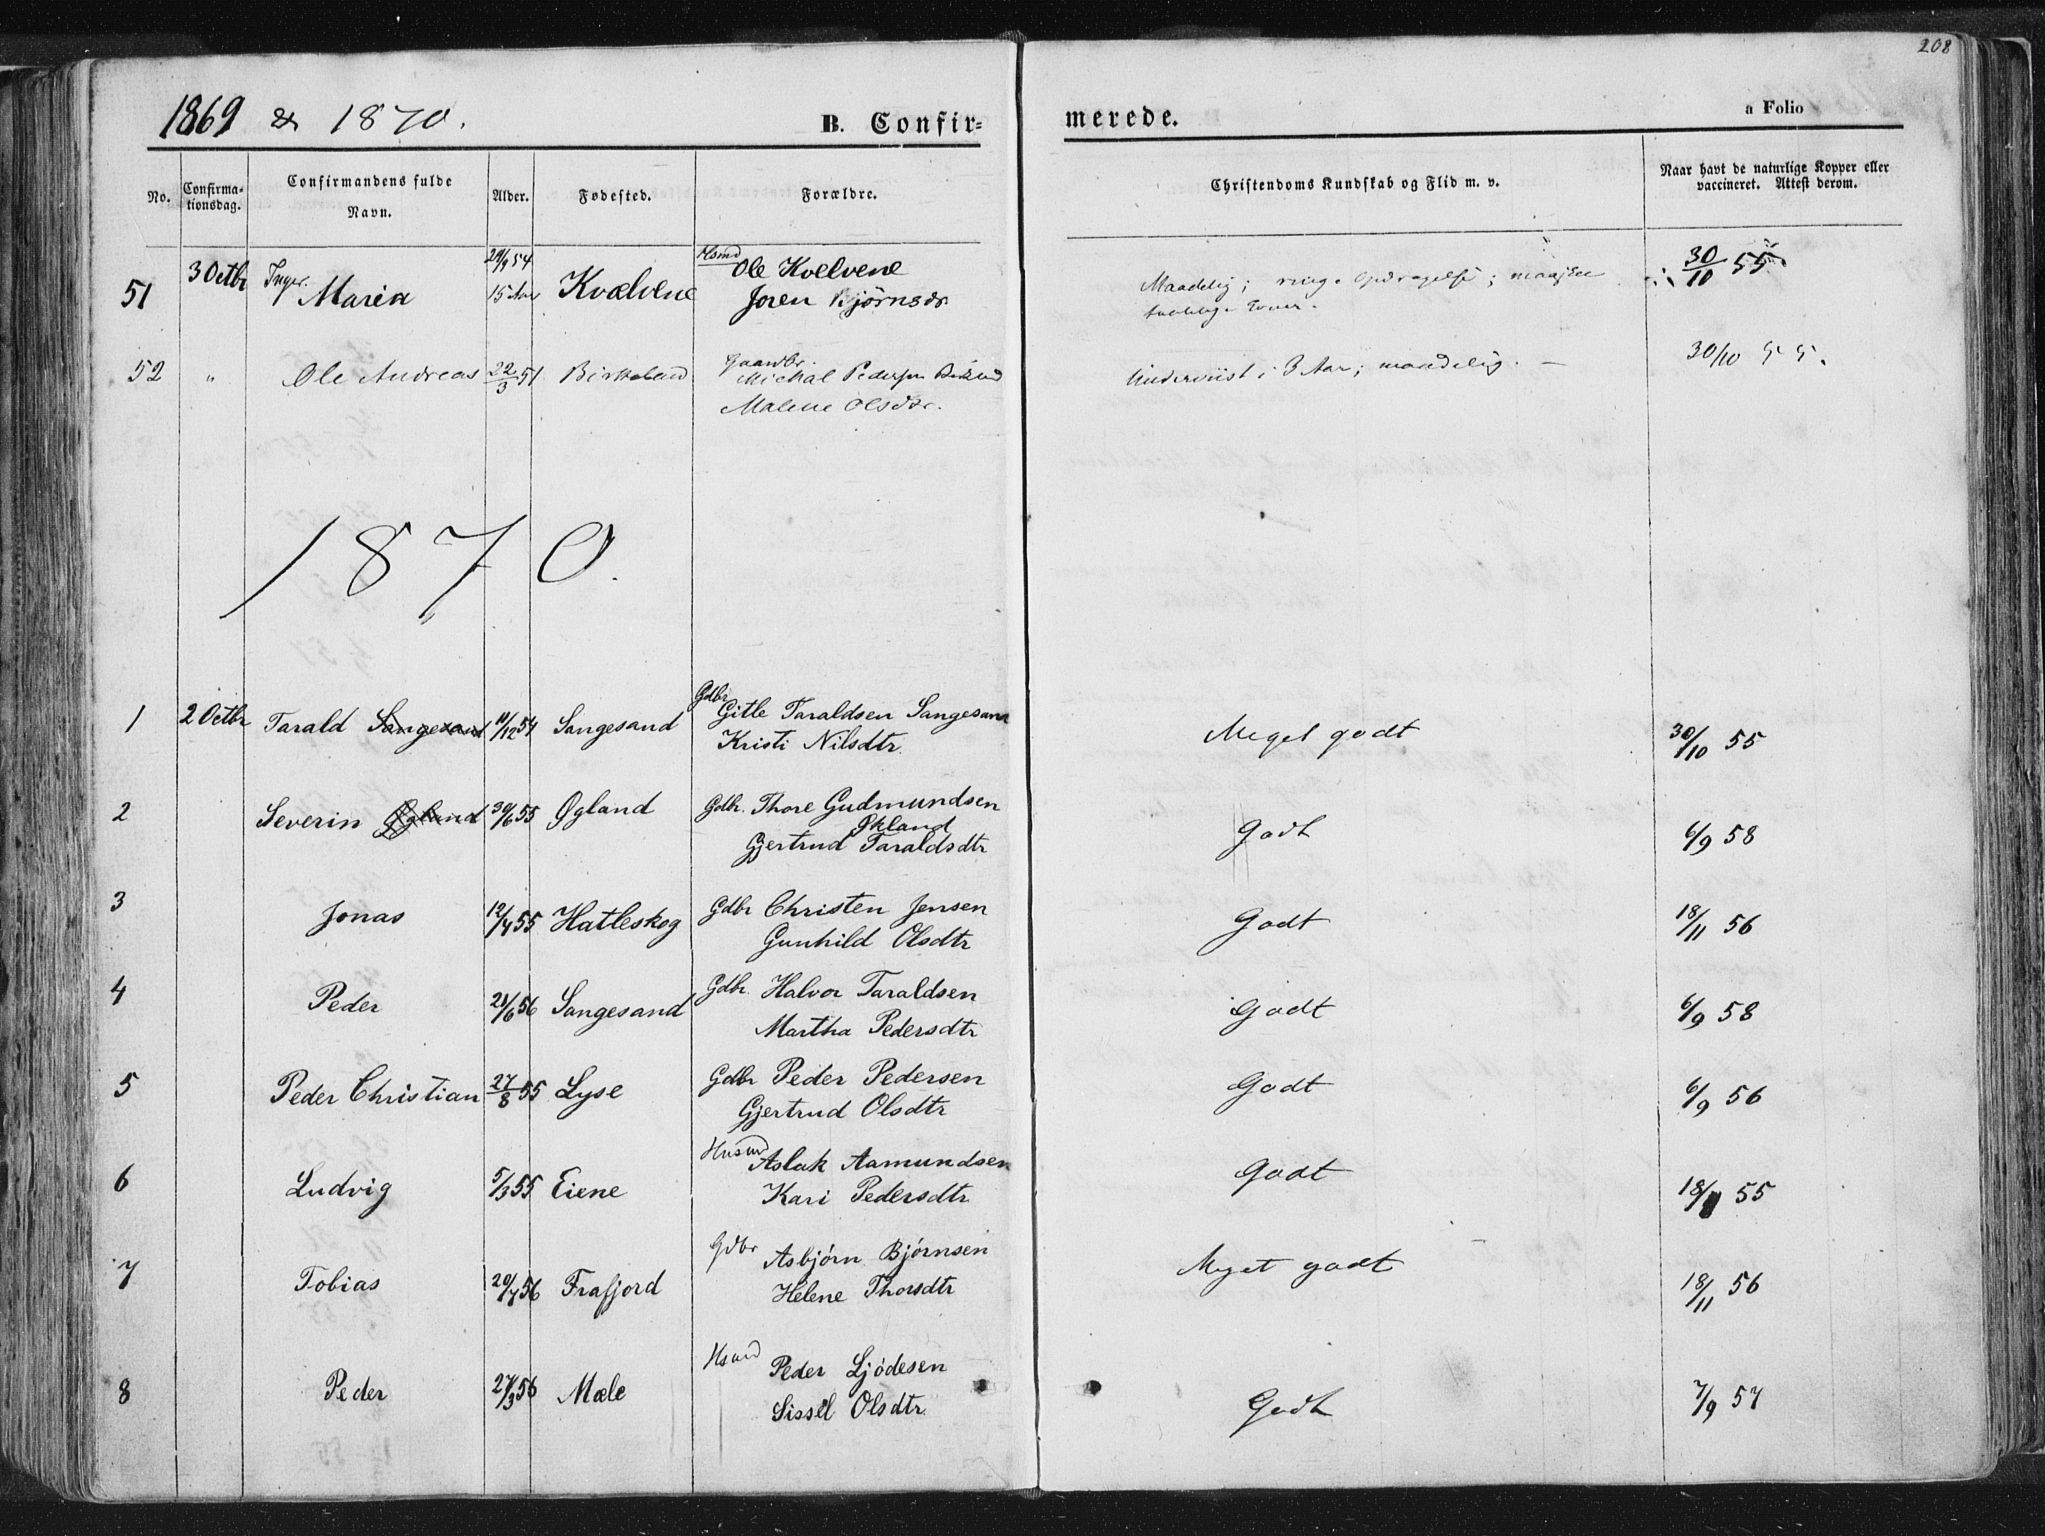 208
1869 & 1870.
B. Confir=
merede.
a Folio
No.
Confirma-
tionsdag.
Confirmandens fulde
Navn.
Alder.
Fødested.
Forældre.
Christendoms Kundskab og Flid m. v.
Naar havt de naturlige Kopper eller
vaccineret. Attest derom.
51 3 Octbr Inger Maria 15 Aar Kvælvene Hsmd Ole Kvelvene
Joren Bjørnsdr.
Maadelig; ringe Opdragelse;
30/10 55
52 " Ole Andreas 22/3 51 Birkeland Gaardbr. Michal Pedersen
Malene Olsdtr.
Underviist i 3 Aar; maadelig. —
30/10 55.
1870.
1 2 Octbr Tarald Sangesand 11/12 54 Sangesand Gdbr Gitle Taraldsen Sangesand
Kristi Nilsdtr.
Meget godt
30/10 55
2 Severin Øgland 30/6 55 Øgland Gdbr. Thore Gudmundsen
Økland
Gjertrud Taraldsdtr
Godt
6/9 58
3 Jonas 12/4 55 Hatleskog Gdbr Christen Jensen
Gunhild Olsdtr
Godt
18/11 56
4 Peder 21/6 56 Sangesand Gdbr. Halvor Taraldsen
Martha Pedersdtr
Godt
6/9 58
5 Peder Christian 27/8 55 Lyse Gdbr Peder Pedersen
Gjertrud Olsdtr
Godt
6/9 56
6 Ludvig 5/3 55 Eiene Husmd Aslak Aamundsen
Kari Pedersdtr
Godt
55
7 Tobias 20/4 56 Frafjord Gdbr Asbjørn Bjørnsen
Helene Thorsdtr
Meget godt
18/11 56
8 Peder 27/3 56 Mæle Hsmd Peder Ljödesen
Sissel Olsdtr.
Godt
7/9 57